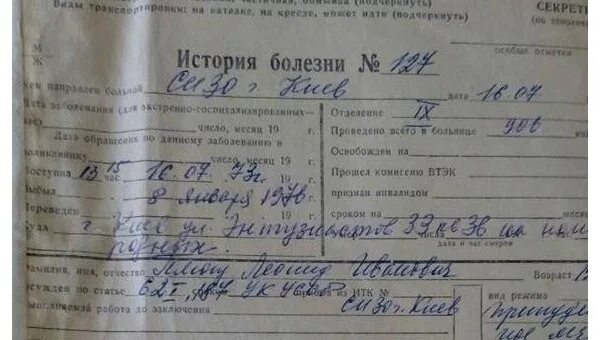 Виды транспортировки: на каталке, на кресле, может идти (подчеркнуть)
СЕКРЕТ
М
Ж
История болезни № 127
особые отметки
кем направлен больной СИЗО г. Киев дата 16.07
Дата заболевания (для экстренно-госпитализированных
число, месяц 19 г.
Отделение IX
Проведено всего в больнице 906
Дата обращения по данному заболеванию в
поликлинику число, месяц 19 г.
Освобожден на
Поступил 13 15 час 16.07.73г.
Прошел комиссию ВТЭК
Выбыл 8 января 1976 г.
признан инвалидом
Переведен 19 г.
сроком на месяц 19
Куда г. Киев ул. Энтузиастов 33 кв 36
дата и час смерти
родных.
Фамилия, имя, отчество Плющ Леонид Иванович Возраст
осужден по статье 62 I, 187 УК УССР из ИТК № СИЗО г Киев
выполняемой работа до заключения
вид режима